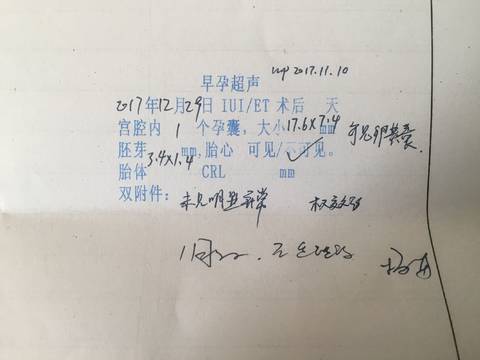 早孕超声 2017.11.10
2017年12月29日 IUI/ET 术后 天
宫腔内 1 个孕囊,大小17.6×7.4 mm 可见卵黄囊.
胚芽 mm,胎心 可见/不可见。
3.4×1.4
胎体 CRL mm
双附件: 未见明显异常